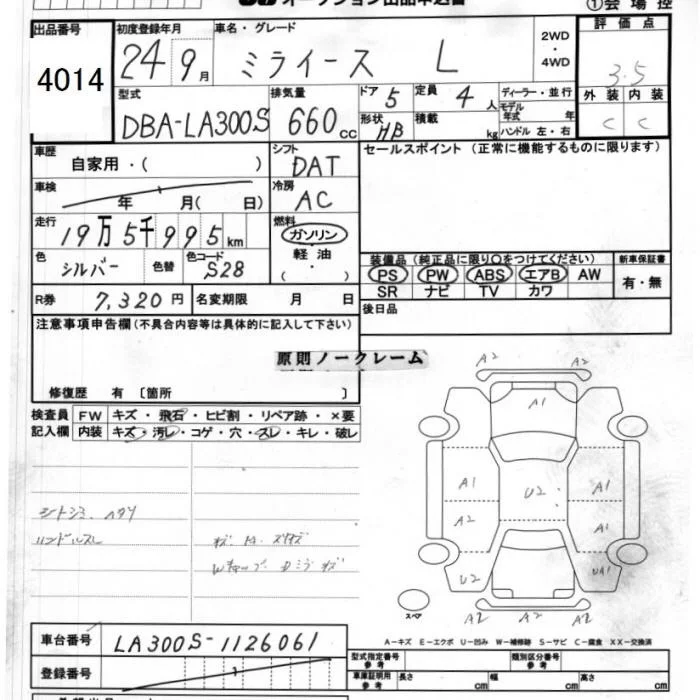 オークション出品申込書
①会場控
出品番号 4014
初度登録年月 24 9月
車名・グレード ミライース L
2WD ・ 4WD
評価点 3.5
型式 DBA-LA300S
排気量 660 cc
ドア 5
定員 4 人
形状 HB
積載 kg
ディーラー・並行
モデル年式 年
ハンドル 左・右
外装 C
内装 C
車歴 自家用・( )
シフト DAT
セールスポイント (正常に機能するものに限ります)
車検 年 月( 日)
冷房 AC
走行 19万5千995km
燃料 ガソリン・軽油・
色 シルバー
色替
色コード S28
装備品 (純正品に限り○をつけてください)
新車保証書 有・無
PS PW ABS エアB AW
SR ナビ TV カワ
R券 7,320円
名変期限 月 日
後日品
注意事項申告欄(不具合内容等は具体的に記入して下さい)
原則ノークレーム
修復歴 有 〔箇所 〕
検査員記入欄
FW キズ・飛石・ヒビ割・リペア跡・×要
内装 キズ・汚レ・コゲ・穴・スレ・キレ・破レ
シートシミ ヘタリ
ハンドルスレ
A2 A2
A1
A1 U2 A1
A2 A1
U2 UA1
スペア
A2 A2 A2
A-キズ E-エクボ U-凹み W-補修跡 S-サビ C-腐食 XX-交換済
車台番号 LA300S-1126061
登録番号
型式指定番号 参考
類別区分番号 参考
車庫証明用 参考 長さ cm 幅 cm 高さ cm